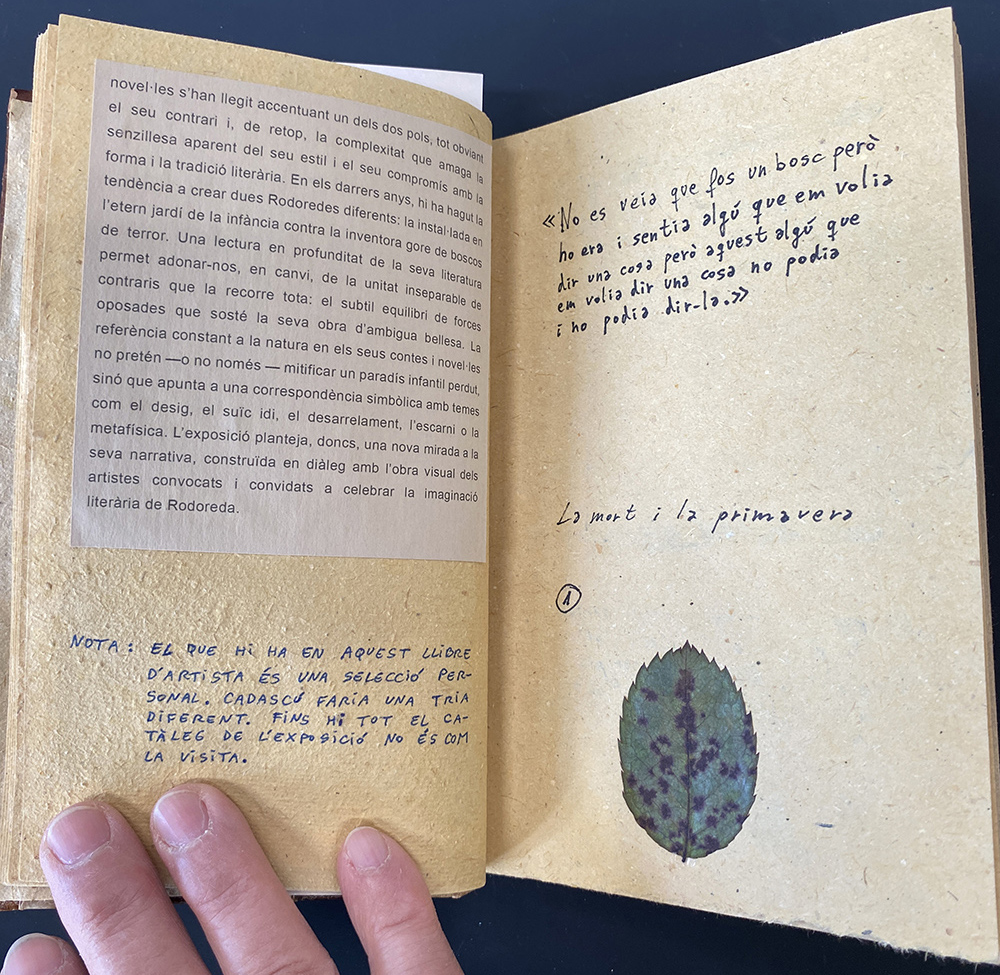 novel·les s'han llegit accentuant un dels dos pols, tot obviant
el seu contrari i, de retop, la complexitat que amaga la
senzillesa aparent del seu estil i el seu compromís amb la
forma i la tradició literària. En els darrers anys, hi ha hagut la
tendència a crear dues Rodoredes diferents: la instal·lada en
l'etern jardí de la infància contra la inventora gore de boscos
de terror. Una lectura en profunditat de la seva literatura
permet adonar-nos, en canvi, de la unitat inseparable de
contraris que la recorre tota: el subtil equilibri de forces
oposades que sosté la seva obra d'ambigua bellesa. La
referència constant a la natura en els seus contes i novel·les
no pretén —o no només — mitificar un paradís infantil perdut,
sinó que apunta a una correspondència simbòlica amb temes
com el desig, el suïc idi, el desarrelament, l'escarni o la
metafísica. L'exposició planteja, doncs, una nova mirada a la
seva narrativa, construïda en diàleg amb l'obra visual dels
artistes convocats i convidats a celebrar la imaginació
literària de Rodoreda.
NOTA: EL QUE HI HA EN AQUEST LLIBRE
D'ARTISTA ÉS UNA SELECCIÓ PER-
SONAL. CADASCÚ FARIA UNA TRIA
DIFERENT. FINS HI TOT EL CA-
TÀLEG DE L'EXPOSICIÓ NO ÉS COM
LA VISITA.
«No es veia que fos un bosc però
ho era i sentia algú que em volia
dir una cosa però aquest algú que
em volia dir una cosa no podia
i no podia dir-la.»
La mort i la primavera
1